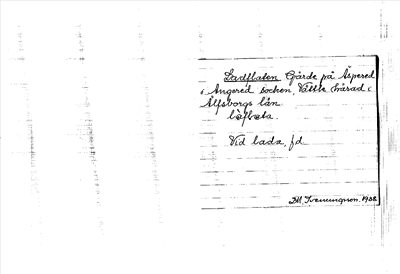 Ladflaten Gärde på Äspered
i Angered socken, Vättle härad i
Älfsborgs län.
Vid lada, fd.
Svenungsson. 1908